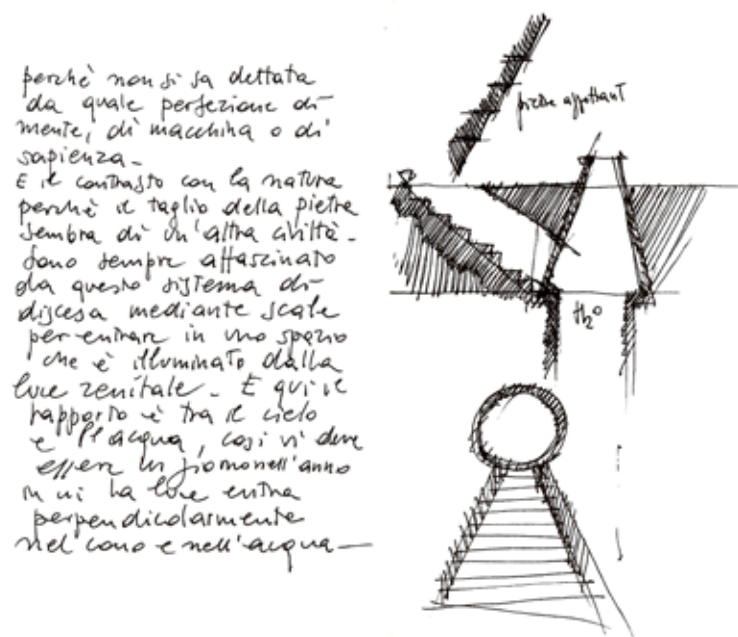 perchè non si sa dettata
da quale perfezione di
mente, di macchina o di
sapienza -
E il contrasto con la natura
perchè il taglio della pietra
sembra di un'altra civiltà -
Sono sempre affascinato
da questo sistema di
discesa mediante scale
per entrare in uno spazio
che è illuminato dalla
luce zenitale - E qui il
rapporto è tra il cielo
e l'acqua, così vi deve
essere un giorno nell'anno
in cui la luce entra
perpendicolarmente
nel cono e nell'acqua —
pietre
H2O